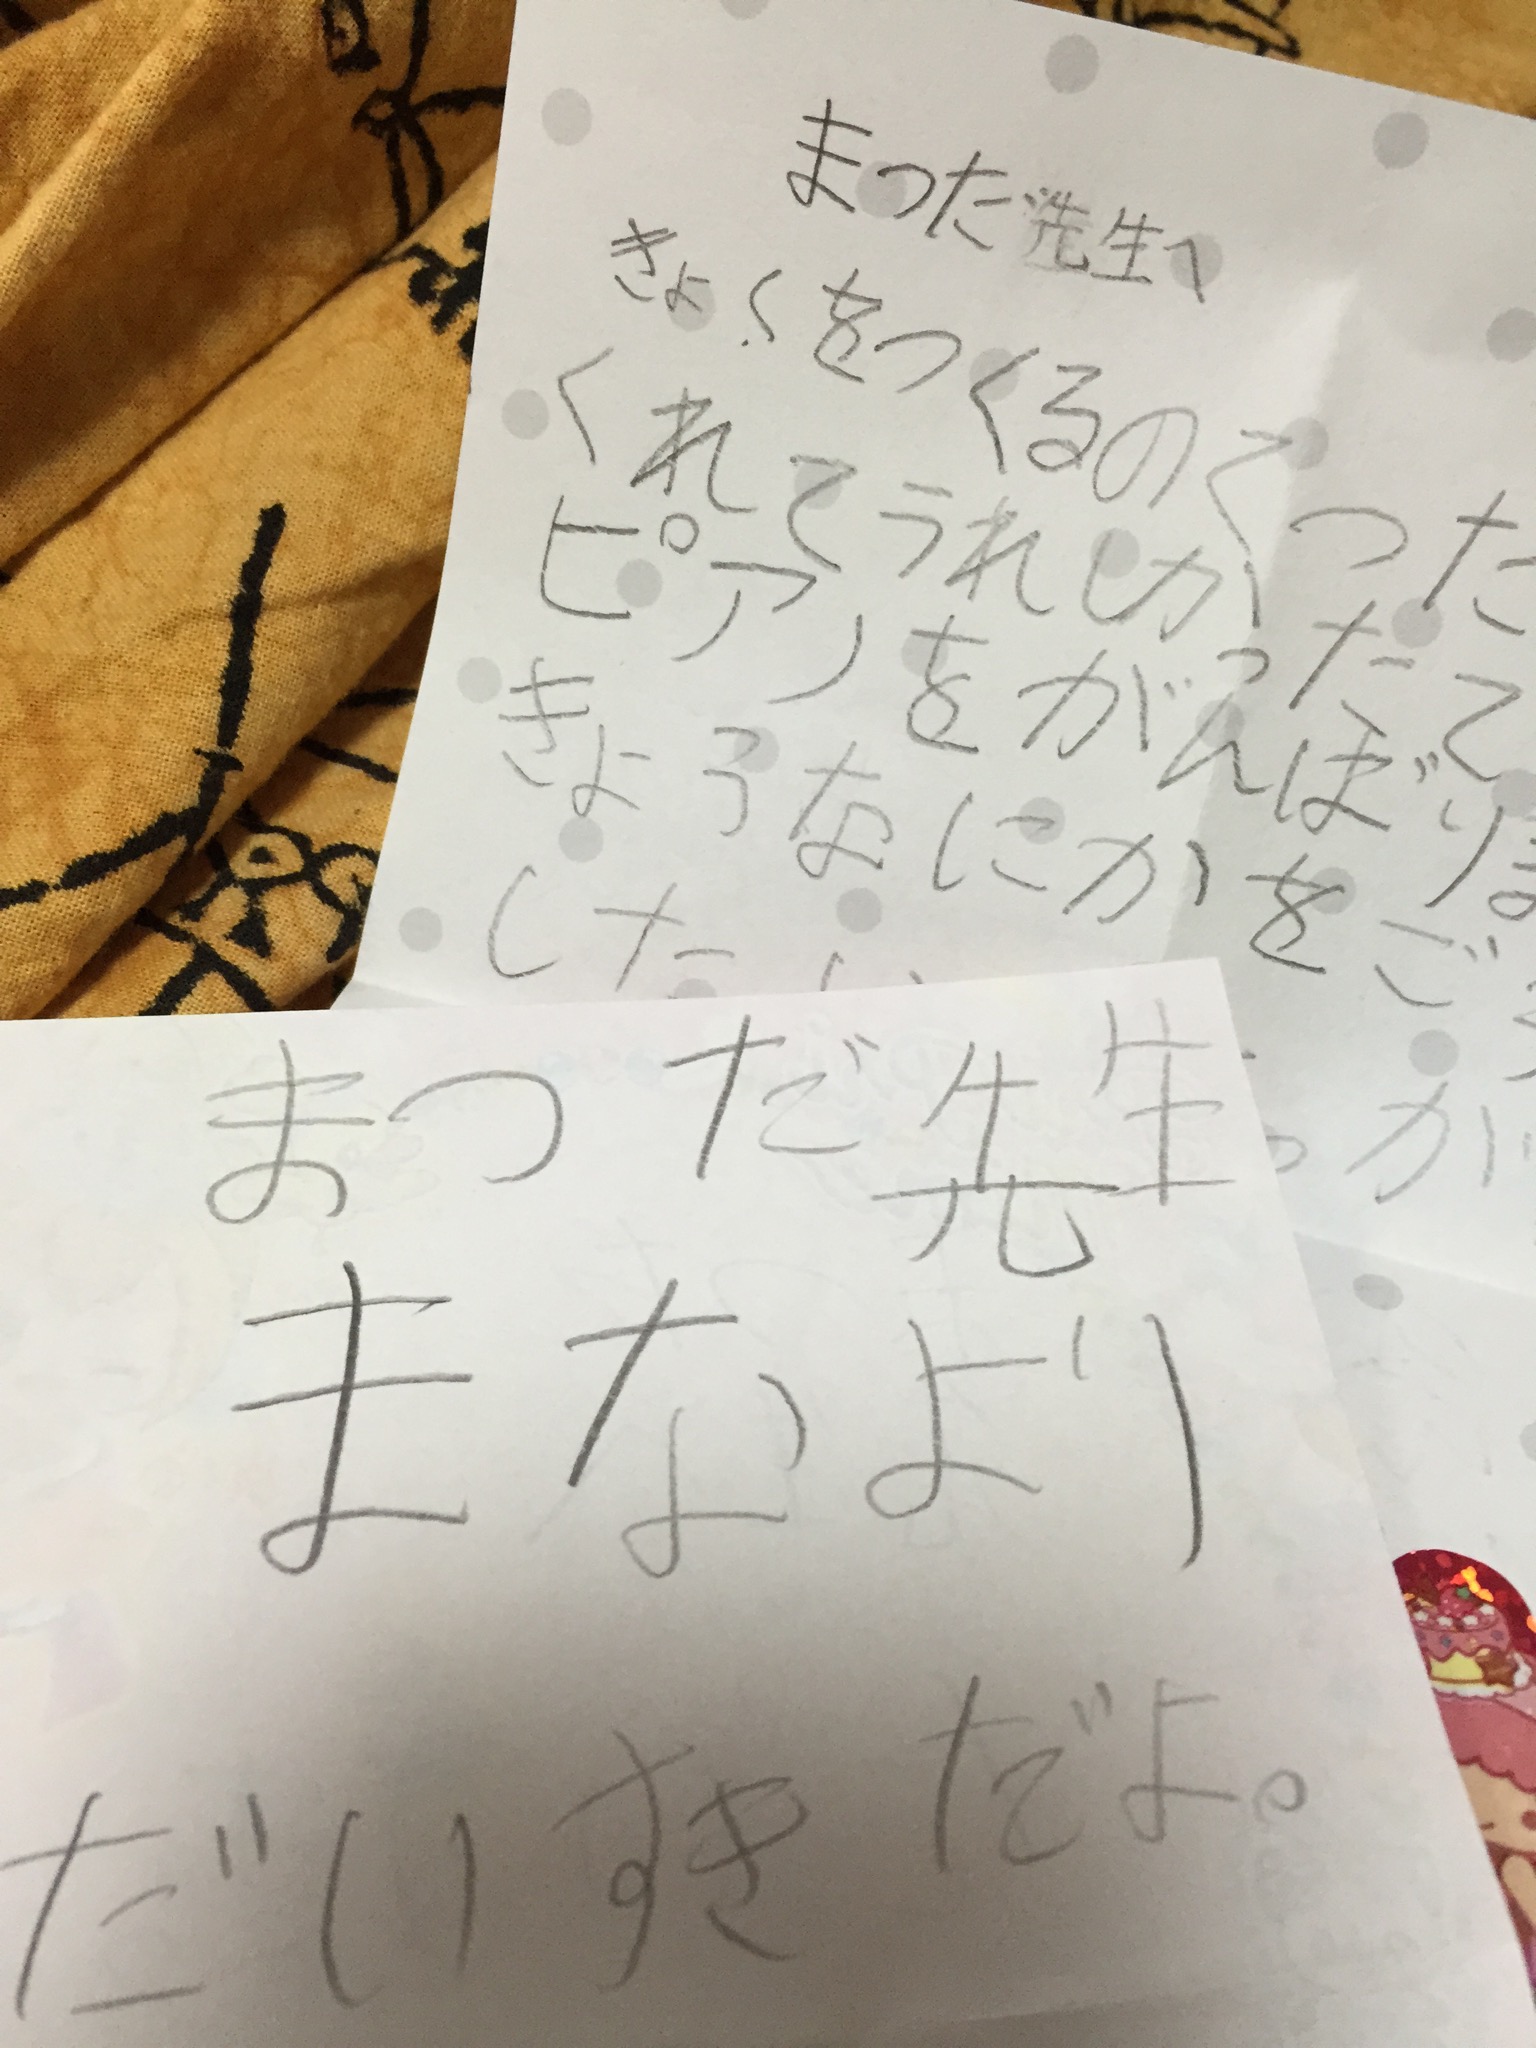 まつだ先生へ
きょくをつくるのてつた
くれてうれしかったて
ピアノをがんばりま
きょうなにかをごう
したい
っか
まつだ先生
まなより
だいすきだよ。